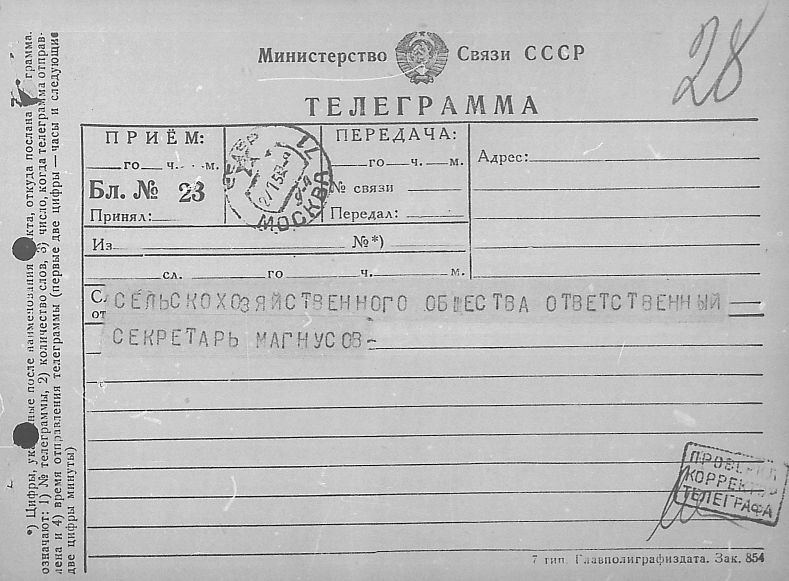 28
Министерство Связи СССР
ТЕЛЕГРАММА
ПРИЁМ:
го ч. м.
Бл. № 23
Принял:
МОСКВА
ПЕРЕДАЧА:
го ч. м.
№ связи
Передал:
Адрес:
Из №*)
сл. го ч. м.
СЕЛЬСКОХОЗЯЙСТВЕННОГО ОБЩЕСТВА ОТВЕТСТВЕННЫЙ
СЕКРЕТАРЬ МАГНУСОВ-
*) Цифры, после наименования откуда послана грамма.
означают: 1) № телеграммы, 2) количество слов, 3) число, когда телеграмма отправ-
лена и 4) время отправления телеграммы (первые две цифры — часы и следующие
две цифры минуты)
КОРРЕКТО
ТЕЛЕГРАФА
7 тип. Главполиграфиздата. Зак. 854